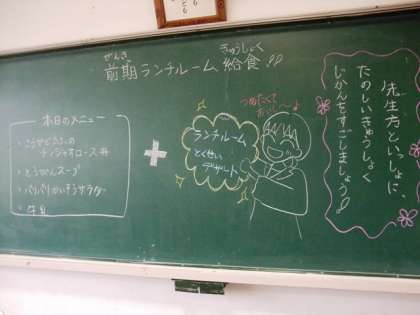 前期ランチルーム給食!!
ぜんき
きゅうしょく
本日のメニュー
チンジャオロース丼
とうがんスープ
パリパリかいそうサラダ
牛乳
+
つめたくて
おいし〜よ
ランチルーム
とくせい
デザート
先生方といっしょに、
たのしいきゅうしょく
じかんをすごしましょう!!